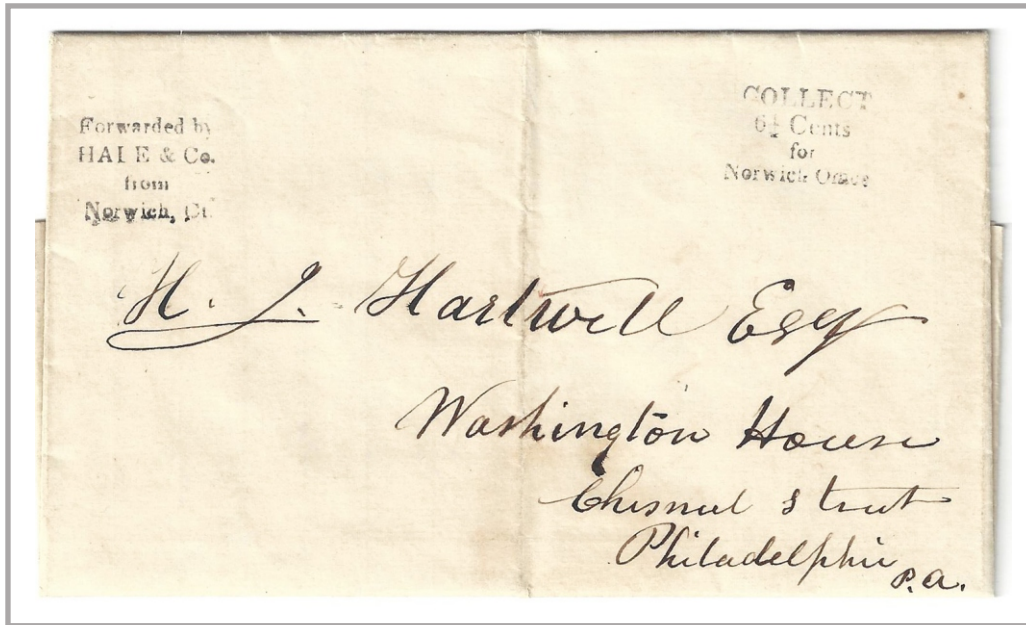 Forwarded by
HALE & Co.
from
Norwich, Ct.
COLLECT
6¼ Cents
for
Norwich Office
H. J. Hartwell Esqr
Washington House
Chesnut Street
Philadelphia
P.A.